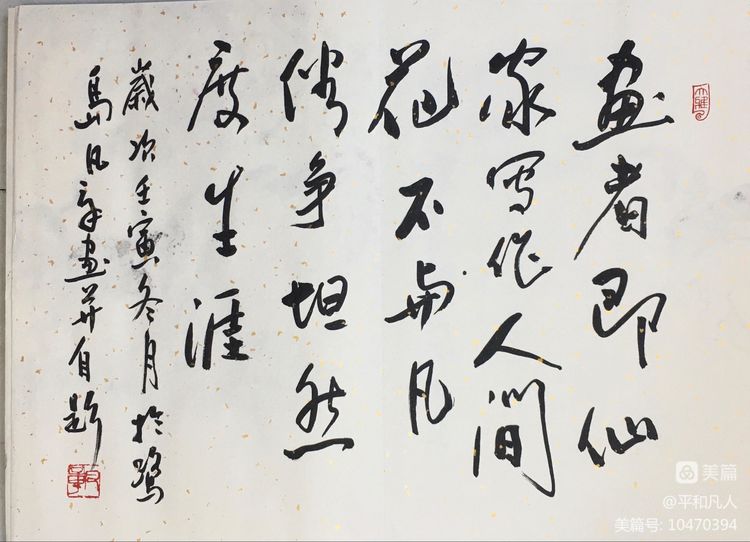 畫者即仙
家写作人间
花不與凡
俗争坦然
度生涯
歲次壬寅冬月於鹭
島凡畫并自题
美篇
@平和凡人
美篇号: 10470394